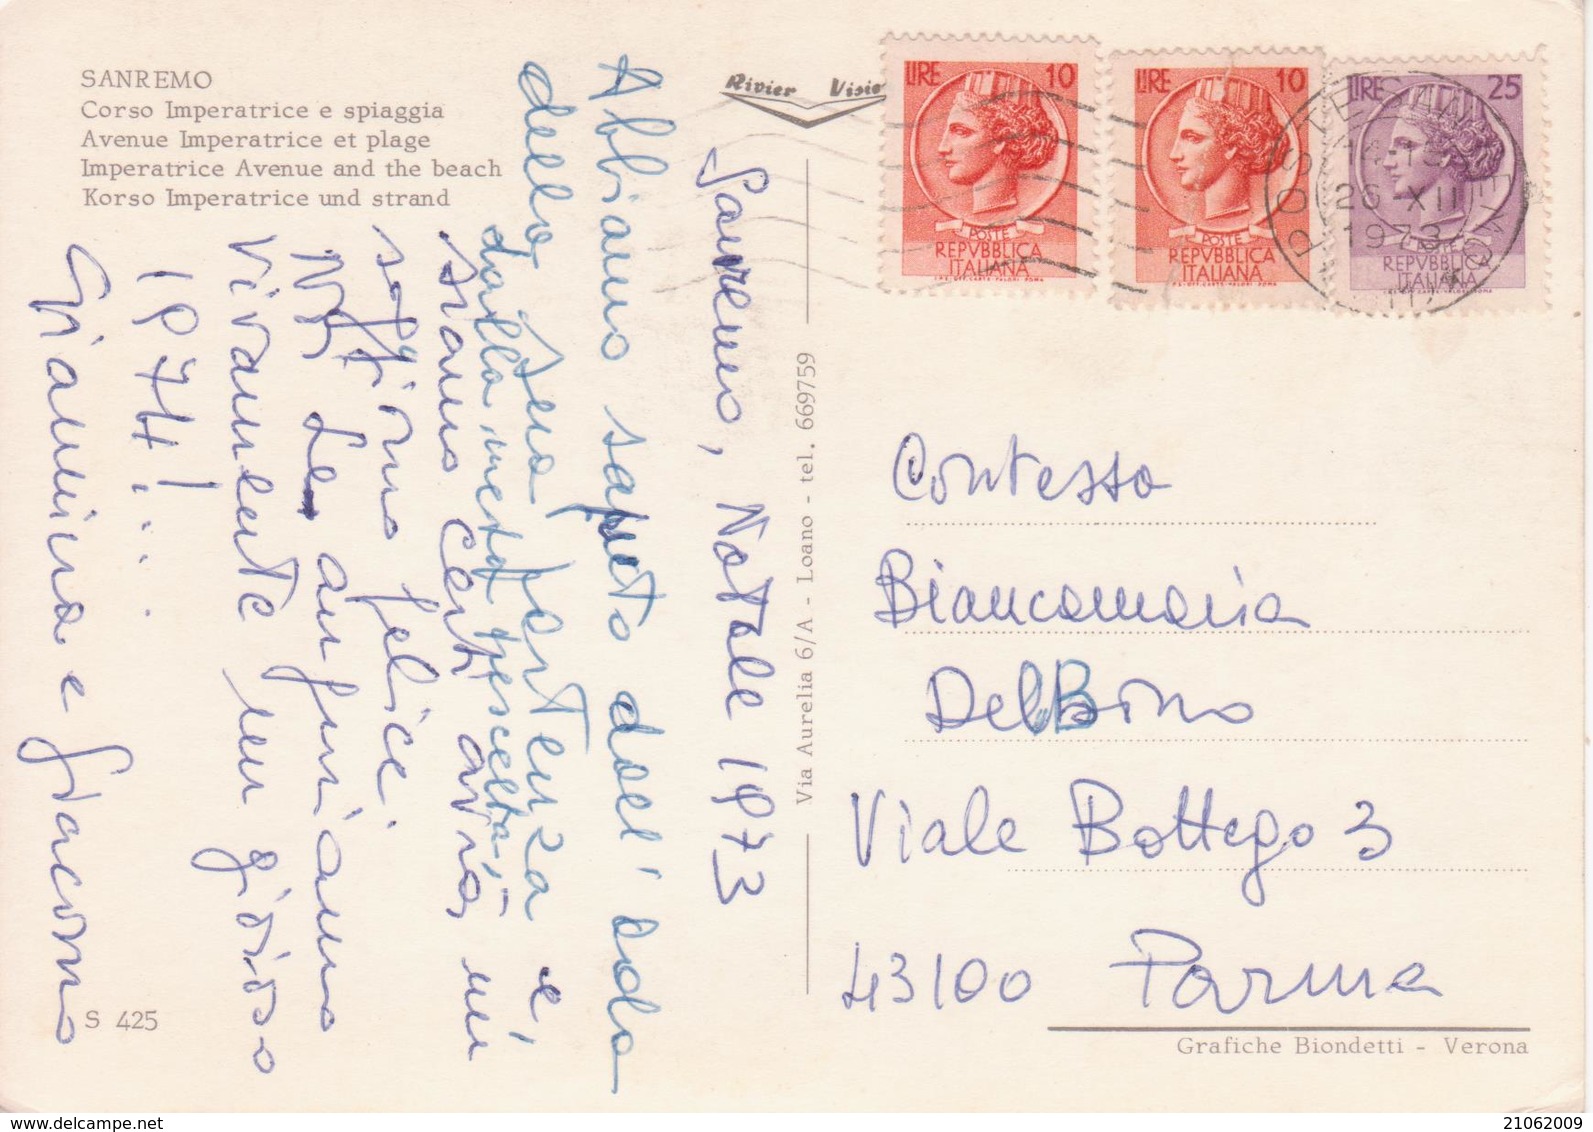 SANREMO
Corso Imperatrice e spiaggia
Avenue Imperatrice et plage
Imperatrice Avenue and the beach
Korso Imperatrice und strand
Rivier Visio
LIRE 10
POSTE
REPVBBLICA
ITALIANA
LIRE 10
POSTE
REPVBBLICA
ITALIANA
LIRE 25
POSTE
REPVBBLICA
ITALIANA
26-XII
1973
Sanremo, Natale 1973
Abbiamo saputo dell'
della Sua partenza e,
dalla meta prescelta,
siamo certi avrà un
soggiorno felice.
Noi Le auguriamo
vivamente un gioioso
1974!...
Giannina e Giacomo
Via Aurelia 6/A - Loano - tel. 669759
Contessa
Biancamaria
Del Bono
Viale Bottego 3
43100 Parma
S 425
Grafiche Biondetti - Verona
21062009